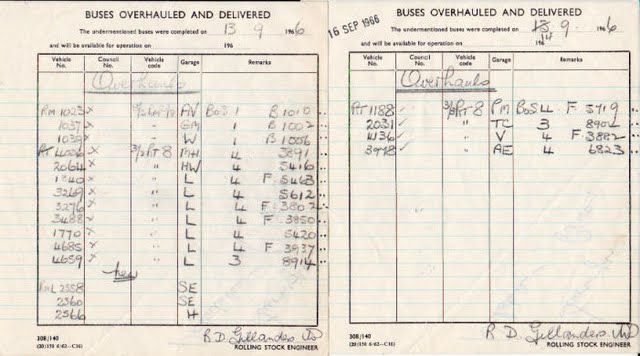 BUSES OVERHAULED AND DELIVERED
The undermentioned buses were completed on 13 9 1966
and will be available for operation on 196
Vehicle No. Council No. Vehicle code Garage Remarks
Overhauls
RM 1023 × AV BoS 1 B 1010
1037 × " GM 1 B 1002
1039 × " W 1 B 1006
RT 4006 × 3/2 RT 8 MH 4 3891
2064 × " HW 4 5416
1840 × " L 4 F 5463
3269 × " L 4 5612
3276 × " L 4 F 3802
3488 × " L 4 F 3850
1770 × " L 4 5420
4685 × " L 4 F 3937
4659 × " L 3 8914
new
RML 2558 SE
2560 SE
2566 H
R.D. Gillanders
30B/140
(20)150 6/62—C16)
ROLLING STOCK ENGINEER
16 SEP 1966
BUSES OVERHAULED AND DELIVERED
The undermentioned buses were completed on 13 9 1966
and will be available for operation on 14 196
Vehicle No. Council No. Vehicle code Garage Remarks
Overhauls
RT 1188 ✓ 3/2 RT 8 PM BoS 4 F 3719
2031 ✓ " TC 3 8902
4136 ✓ " V 4 F 3882
3978 ✓ " AE 4 6823
R.D. Gillanders
30B/140
(20)150 6/62—C16)
ROLLING STOCK ENGINEER